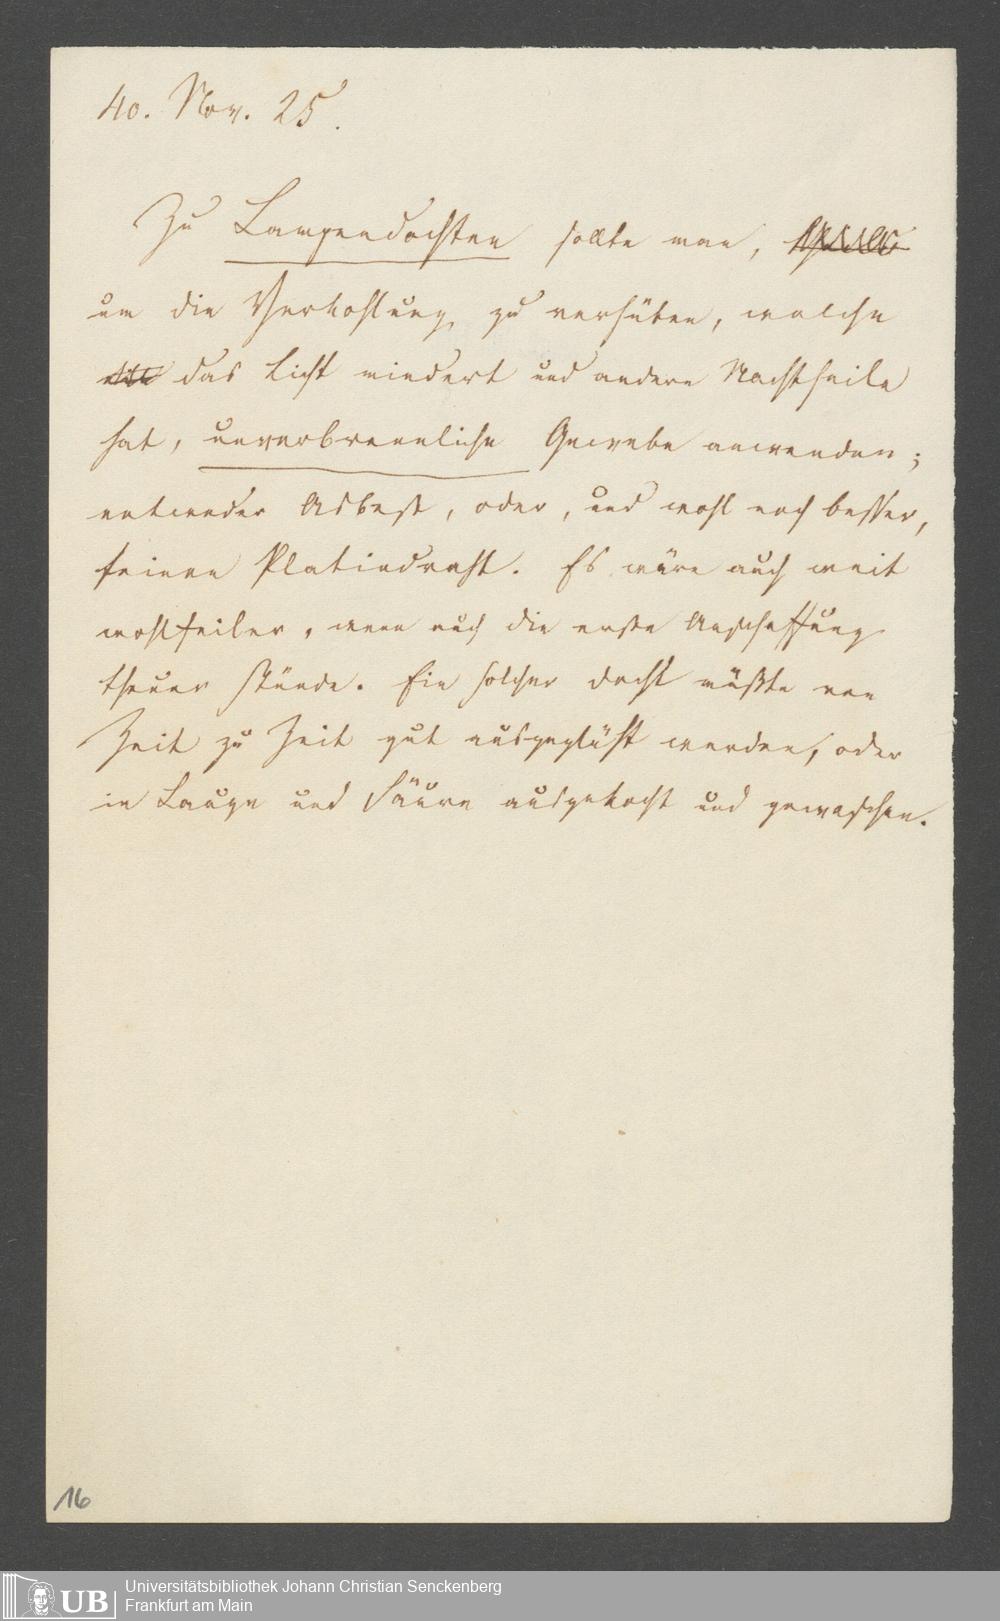 40. Nov. 25.
Zu Lampendochten sollte man,
um die Verkohlung zu verhüten, welche
das Licht mindert und andere Nachtheile
hat, unverbrennliche Gewebe anwenden;
entweder Asbest, oder, und wohl noch besser,
feinen Platindraht. Es wäre auch weit
wohlfeiler, wenn auch die erste Anschaffung
theuer stünde. Ein solcher Docht müßte von
Zeit zu Zeit gut ausgeglüht werden, oder
in Lauge und Säure ausgekocht und gewaschen.
16
UB Universitätsbibliothek Johann Christian Senckenberg
Frankfurt am Main